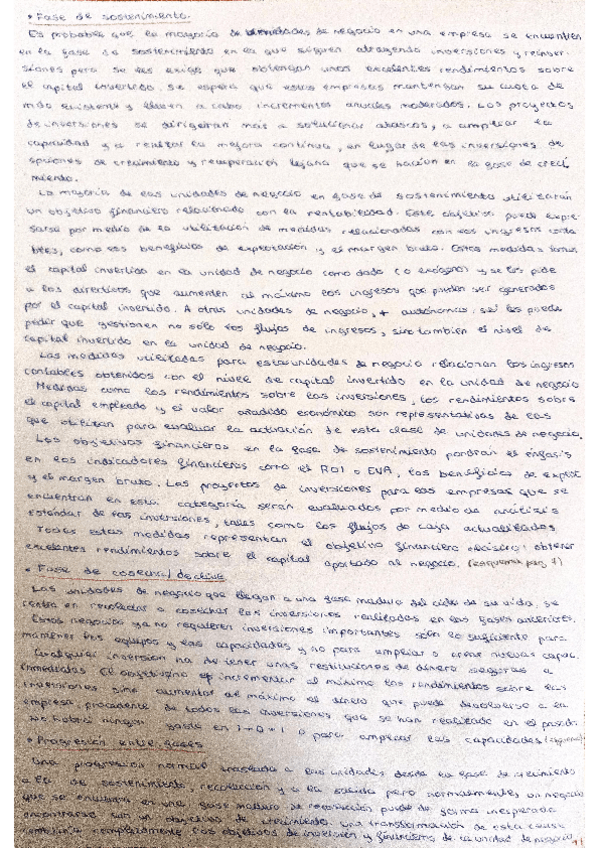 • Fase de sostenimiento.
Es probable que la mayoría de unidades de negocio en una empresa se encuentren
en la fase de sostenimiento en la que siguen atrayendo inversiones y reinver-
siones pero se les exige que obtengan unos excelentes rendimientos sobre
el capital invertido. Se espera que estas empresas mantengan su cuota de
mdo existente y lleven a cabo incrementos anuales moderados. Los proyectos
de inversiones se dirigirán más a solucionar atascos, a ampliar la
capacidad y a realizar la mejora continua, en lugar de las inversiones de
opciones de crecimiento y recuperación lejana que se hacían en la fase de creci
miento.
La mayoría de las unidades de negocio en fase de sostenimiento utilizarán
un objetivo financiero relacionado con la rentabilidad. Este objetivo puede expre-
sarse por medio de la utilización de medidas relacionadas con los ingresos conta
bles, como los beneficios de explotación y el margen bruto. Estas medidas toman
el capital invertido en la unidad de negocio como dado (o exógeno) y se les pide
a los directivos que aumenten al máximo los ingresos que pueden ser generados
por el capital invertido. A otras unidades de negocio, + autónomas, se les puede
pedir que gestionen no sólo los flujos de ingresos, sino también el nivel de
capital invertido en la unidad de negocio.
Las medidas utilizadas para estas unidades de negocio relacionan los ingresos
contables obtenidos con el nivel de capital invertido en la unidad de negocio
Medidas como los rendimientos sobre las inversiones, los rendimientos sobre
el capital empleado y el valor añadido económico son representativas de las
que utilizan para evaluar la actuación de esta clase de unidades de negocio.
Los objetivos financieros en la fase de sostenimiento pondrán el énfasis
en los indicadores financieros como el ROI o EVA, los beneficios de explot
y el margen bruto. Los proyectos de inversiones para las empresas que se
encuentran en esta categoría serán evaluados por medio de análisis
estándar de las inversiones, tales como los flujos de caja actualizados
Todas estas medidas representan el objetivo financiero clásico: obtener
excelentes rendimientos sobre el capital aportado al negocio. (esquema pag 7)
• Fase de cosecha/ declive
Las unidades de negocio que llegan a una fase madura del ciclo de su vida, se
centra en recolectar o cosechar las inversiones realizadas en las fases anteriores.
Estos negocios ya no requieren inversiones importantes sólo lo suficiente para
mantener los equipos y las capacidades y no para ampliar o crear nuevas capac.
Cualquier inversión ha de tener unas restituciones de dinero seguras e
inmediatas. El objetivo no es incrementar al máximo los rendimientos sobre las
inversiones sino aumentar al máximo el dinero que puede devolverse a la
empresa procedente de todas las inversiones que se han realizado en el pasado
No habrá ningún gasto en I+D+I o para ampliar las capacidades
• Progresión entre fases
Una progresión normal traslada a las unidades desde la fase de crecimiento
a la de sostenimiento, recolección y a la salida pero normalmente un negocio
que se encuentra en una fase madura de recolección puede de forma inesperada
encontrarse con un objetivo de crecimiento. Una transformación de esta clase
cambiaría completamente los objetivos de inversión y financieros de la unidad de negocio.